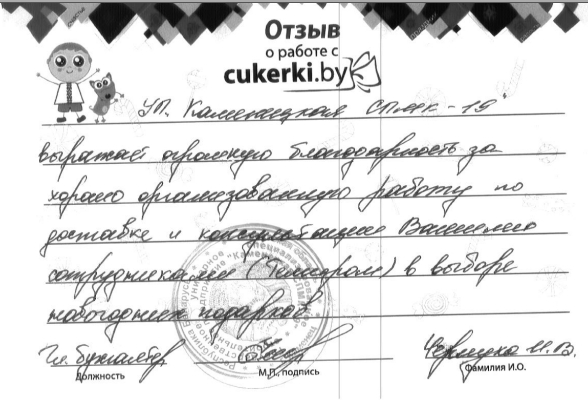 Отзыв
о работе с
cukerki.by
УП. Каменецкая СПМК-19
выражает огромную благодарность за
хорошо организованную работу по
доставке и консультацию Вашими
сотрудниками в выборе
новогодних подарков
Гл. бухгалтер
Должность
М.П., подпись
Фамилия И.О.